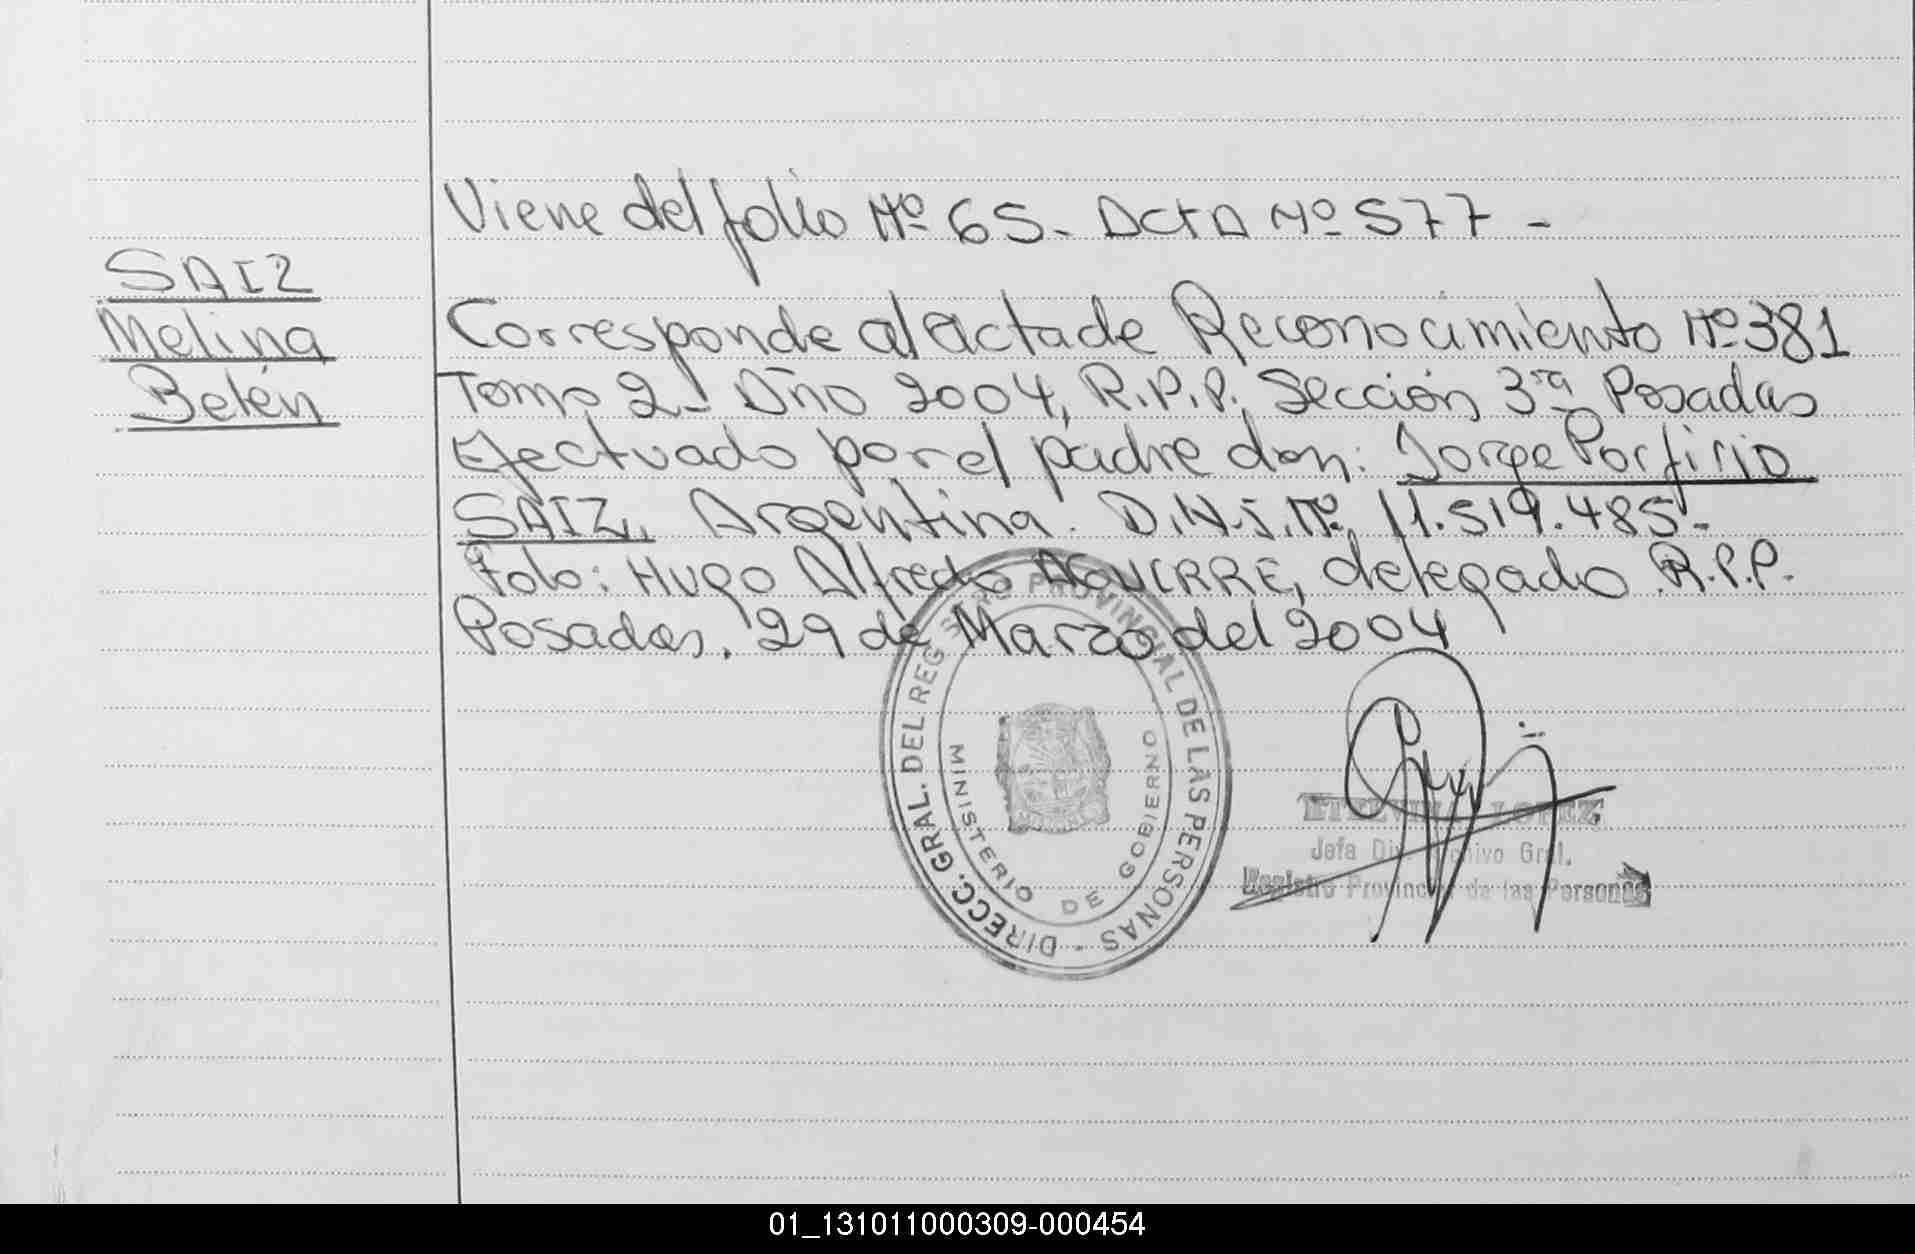 Viene del folio Nº 65- Acta Nº 577 -
SAIZ
Melina
Belén
Corresponde al acta de Reconocimiento Nº 381
Tomo 2- Año 2004, R.P.P. Sección 3ra Posadas
Efectuado por el padre don: Jorge Porfirio
SAIZ, Argentina. D.N.I. Nº 11.519.485-
Fdo: Hugo Alfredo AGUIRRE, delegado R.P.P.
Posadas, 29 de Marzo del 2004
DIRECC. GRAL. DEL REGISTRO PROVINCIAL DE LAS PERSONAS -
MINISTERIO DE GOBIERNO
ETELVINA LOPEZ
Jefa Div. Archivo Gral.
Registro Provincial de las Personas
01_131011000309-000454